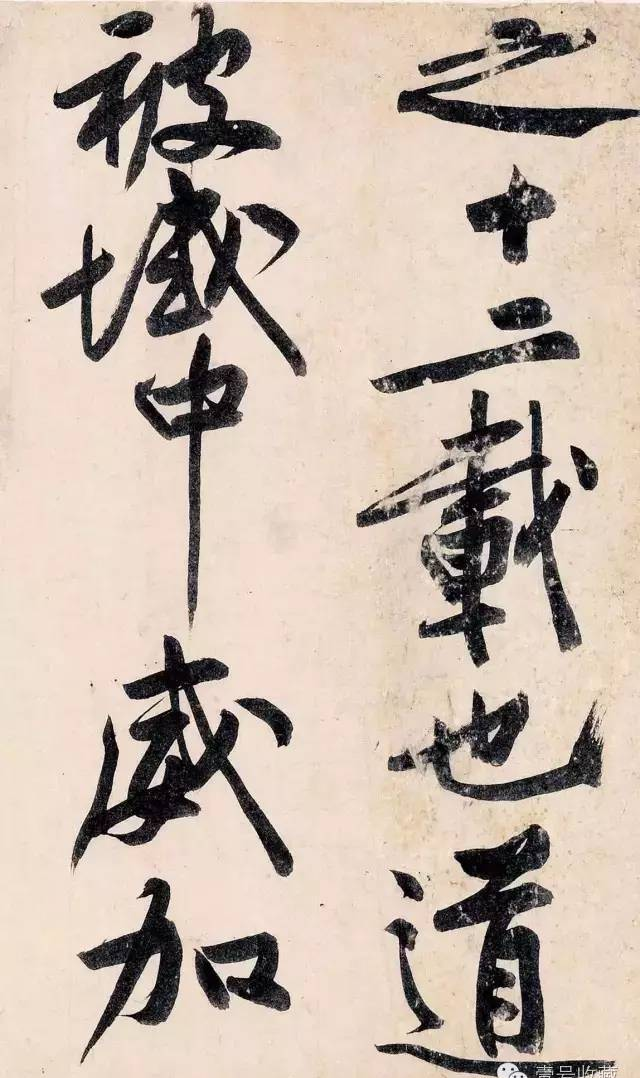 之十二載也道
被域中威加
壹号收藏